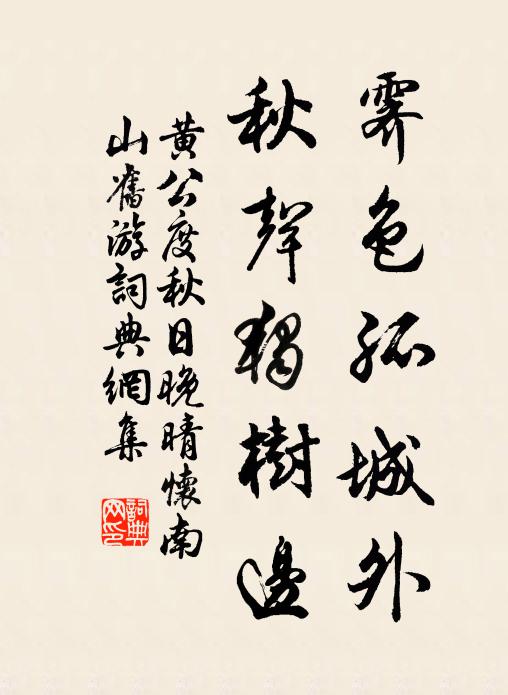 霽色孤城外
秋聲獨樹邊
黃公度秋日晚晴懷南
山舊游詞典網集
詞典網印